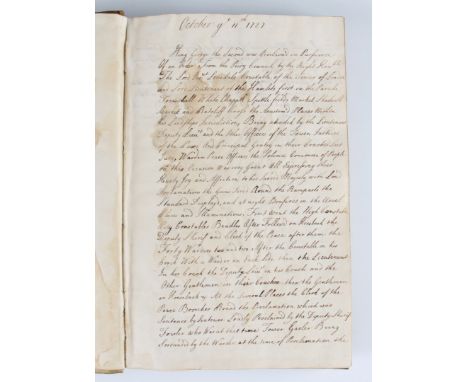 October ye 11th 1727
King George the Second was Proclaimed in Pursuance
Of an Order from the Privy Council by the Right Honble
The Lord Constable of the Tower of London
and Lord Lieutenant of the Hamlets first on the Parade
White Chappell Spittle fields Market Shadwell
and Ratcliff being the Places Within
his Lordships Jurisdiction, Being attended by the Lieutenant
Deputy Lieut and the Other Officers of the Tower Justices
of the Peace and Principal Gentry in their Coaches
Warders Peace Officers the Vast Concourse of People
on this Occasion was very Great All Expressing their
Hearty Joy and Affection to his Sacred Majesty with Loud
Acclamations the Guns fired Round the Ramparts the
Standard Displayd, and at night Bonfires in the Usual
Places and Illuminations First Went the High Constable
Constables Beadles After Followd on Horseback the
Deputy Sherif and Clerk of the Peace after them the
Forty Warders two and two After the Constable in his
Coach With a Warder on Each Side then the Lieutenant
In his Coach the Deputy Lieut in his Coach and the
Other Gentlemen in their Coaches then the Gentlemen
on Horseback & At the Several Places the Clerk of the
Peace Read the Proclamation which was
Sentence by Sentence Loudly Proclaimed by the Deputy Sherif
Fowler who Was at that time Tower Gaoler Being
Surrounded by the Warders at the time of Proclamation the